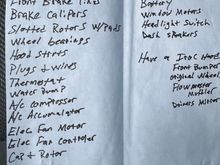 Front Brake lines
Brake Calipers
Slotted Rotors w/Pads
Wheel bearings
Hood struts
Plugs & wires
Thermostat
Water Pump
A/c compressor
A/c Accumulator
Elec Fan Motor
Elec Fan Controller
Cap & Rotor
Battery
Window Motors
Headlight Switch
Dash speakers
Have a IROC Hood
Front Bumper
original Wheels
Flowmaster
Muffler
Drivers Mirror